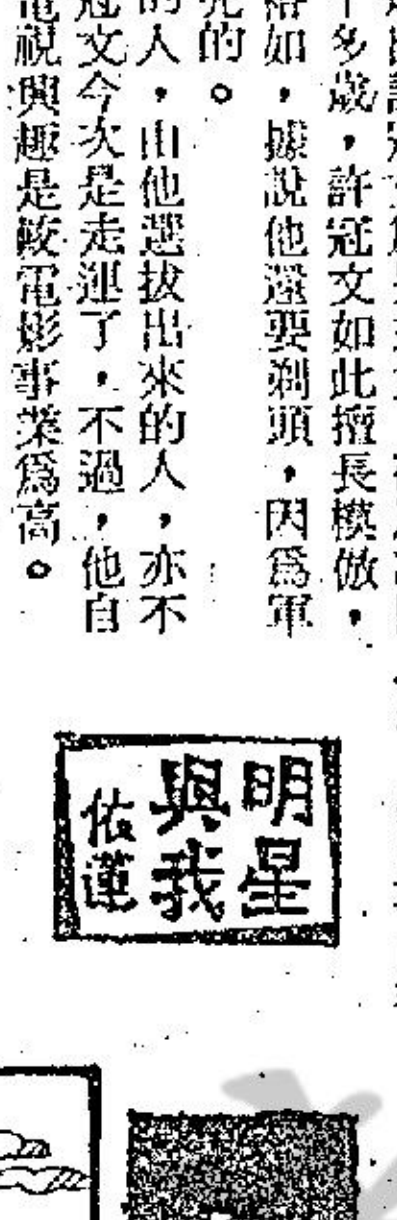 多歲，許冠文如此擅長模倣，
如，據說他還要剃頭，因爲軍
的。
人，由他選拔出來的人，亦不
文今次是走運了，不過，他自
視興趣是較電影事業爲高。
明星
與我
依蓮